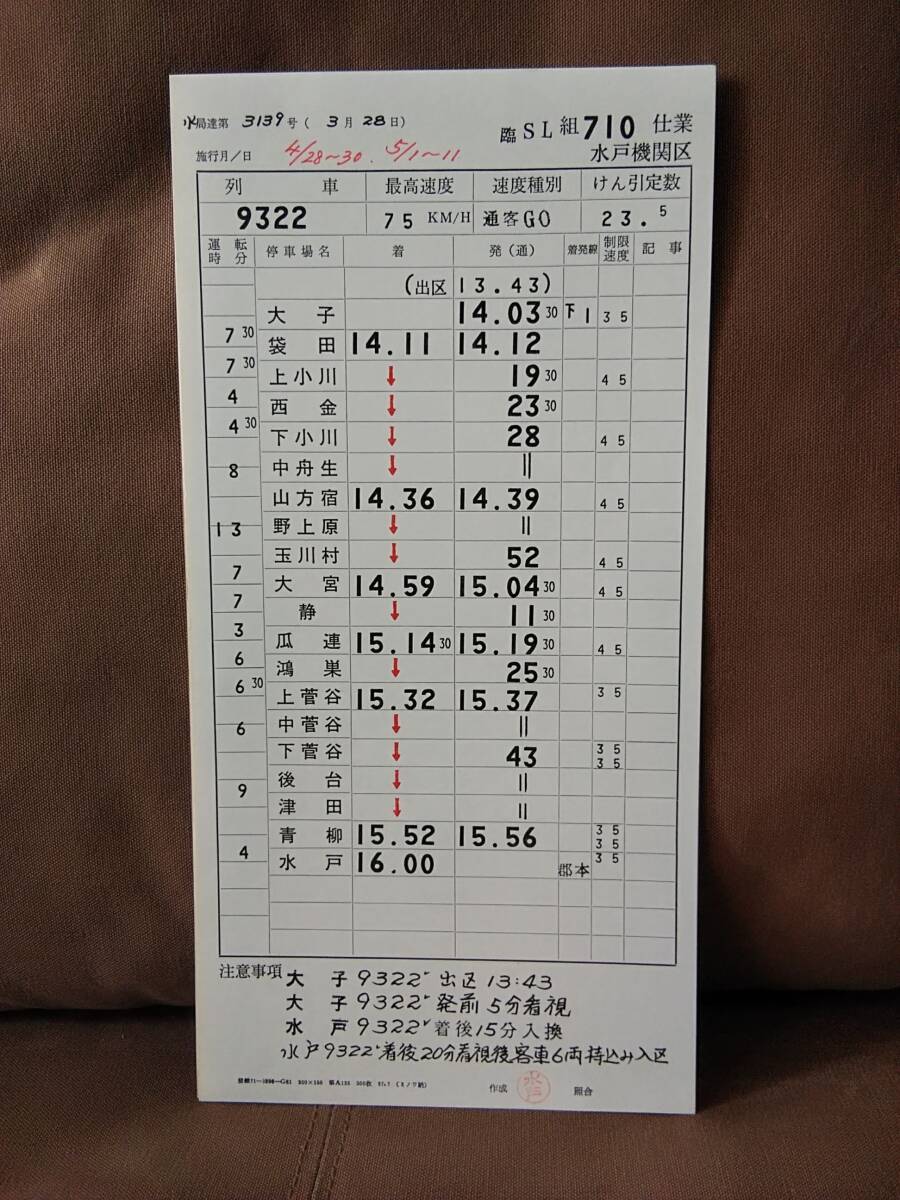 水局達第 3139 号 ( 3 月 28 日)
臨 SL 組 710 仕業
施行月/日 4/28~30. 5/1~11
水戸機関区
列 車 最高速度 速度種別 けん引定数
9322 75 KM/H 通客G0 23.5
運転時分 停車場名 着 発(通) 着発線 制限速度 記事
(出区 13.43)
大 子 14.03 30 下1 35
7 30
袋 田 14.11 14.12
7 30
上小川 ↓ 19 30 45
4
西 金 ↓ 23 30
4 30
下小川 ↓ 28 45
8
中舟生 ↓ ||
山方宿 14.36 14.39 45
13
野上原 ↓ ||
玉川村 ↓ 52 45
7
大 宮 14.59 15.04 30 45
7
静 ↓ 11 30
3
瓜 連 15.14 30 15.19 30 45
6
鴻 巣 ↓ 25 30
6 30
上菅谷 15.32 15.37 35
6
中菅谷 ↓ ||
下菅谷 ↓ 43 35 35
9
後 台 ↓ ||
津 田 ↓ ||
青 柳 15.52 15.56 35 35
4
水 戸 16.00 郡本 35
注意事項 大 子 9322レ 出区 13:43
大 子 9322レ 発前 5分看視
水 戸 9322レ 着後15分入換
水戸9322レ着後20分看視後客車6両持込み入区
作成 水戸 照合